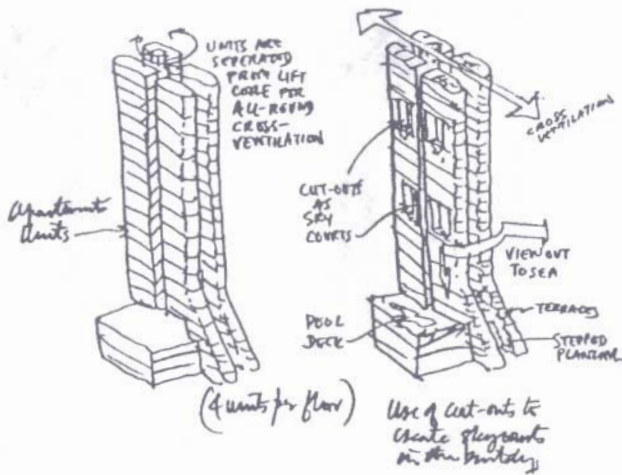 UNITS ARE
SEPERATED
FROM LIFT
CORE FOR
ALL-ROUND
CROSS-
VENTILATION
Apartment
Units
(4 units per floor)
CROSS
VENTILATION
CUT-OUTS
AS
SKY
COURTS
VIEW OUT
TO SEA
POOL
DECK
TERRACES
STEPPED
PLANTER
Use of cut-outs to
create skycourts
in the building